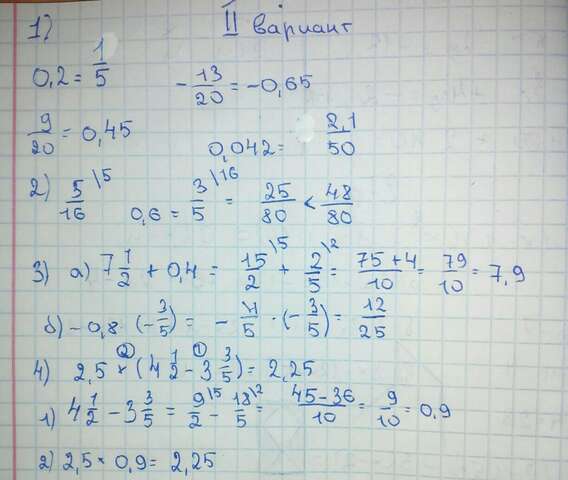 1) II вариант
0,2 = 1/5 - 13/20 = -0,65
9/20 = 0,45 0,042 = 2,1/50
2) 5/16 \5 0,6 = 3/5 \16 = 25/80 < 48/80
3) а) 7 1/2 + 0,4 = 15/2 \5 + 2/5 \2 = 75+4/10 = 79/10 = 7,9
б) -0,8 · (-3/5) = - 4/5 · (-3/5) = 12/25
4) 2,5 × (4 1/2 - 3 3/5) = 2,25
② ①
1) 4 1/2 - 3 3/5 = 9/2 \5 - 18/5 \2 = 45-36/10 = 9/10 = 0,9
2) 2,5 × 0,9 = 2,25